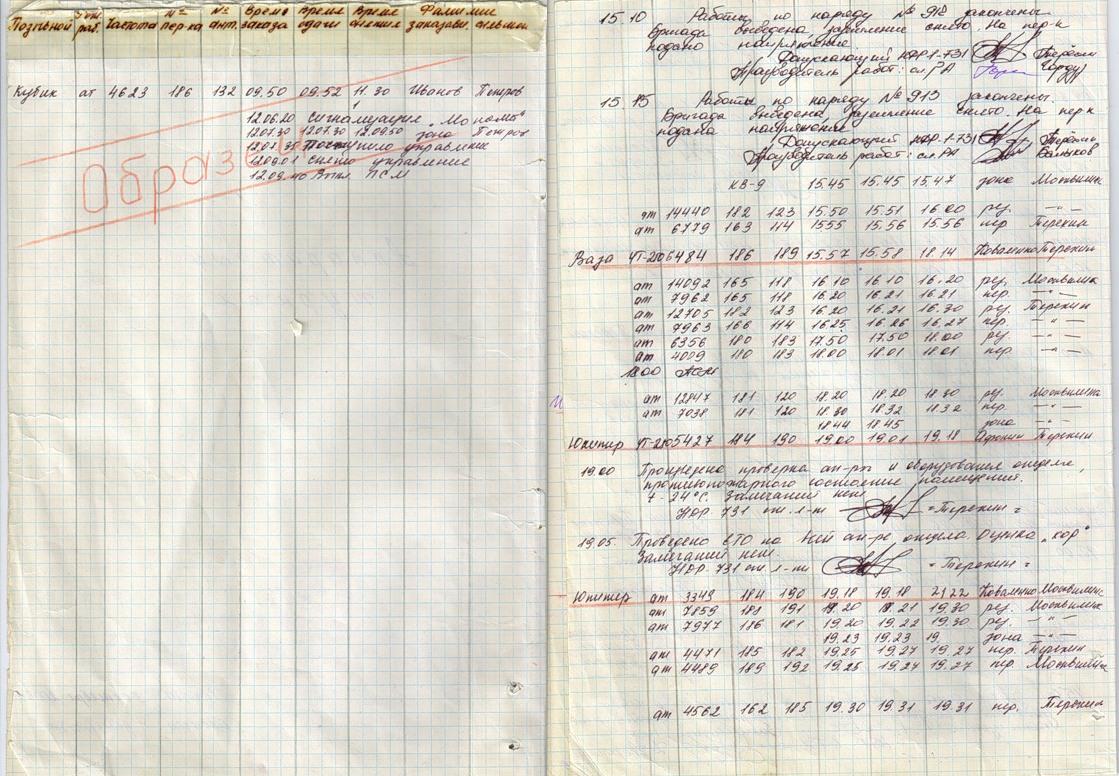 Позывной раб. Частота № пер-ка № ант. Время заказа Время подачи Время Фамилие заказыв.
Кубик ат 4623 186 132 09.50 09.52 11.30 Иванов Петров
12.06.20 Сигнализация "Монолит"
12.07.30 12.07.30 12.09.50 зона Петров
Поступило управление
12.09.01 снято управление
ПСМ
Образец
15.10 Работы по наряду № 912 закончены.
Бригада выведена, заземление снято. На пер-к
подано напряжение.
Допускающий НДР-731 Терёхин
Производитель работ: сл. РА
15.15 Работы по наряду № 913 закончены.
Бригада выведена заземление снято. На пер-к
подано напряжение.
Допускающий НДР-731 Терёхин
Производитель работ: сл. РА
КВ-9 15.45 15.45 15.47 зона
ат 14440 182 123 15.50 15.51 16.00 рез. —"—
ат 6779 163 114 1555 15.56 15.56 пер Терехин
Ваза 6484 186 189 15.57 15.58 18.14 Коваленко Терехин
ат 14092 165 118 16.10 16.10 16.20 рез.
ат 7962 165 118 16.20 16.21 16.21 пер. —"—
ат 12705 182 123 16.20 16.21 16.30 рез. Терехин
ат 7963 166 114 16.25 16.26 16.27 пер. —"—
ат 6356 180 183 17.50 17.50 18.00 рез. —"—
ат 4009 180 183 18.00 18.01 18.01 пер. —"—
18.00
ат 12847 181 120 18.20 18.20 18.30 рез.
ат 7038 181 120 18.30 18.32 18.32 пер. —"—
18.44 18.45 зона —"—
Юпитер 5427 184 190 19.00 19.01 19.18 Терехин
19.00 Проведена проверка ап-ры и оборудования отдела,
противопожарного состояния помещений.
t-24°С. Замечаний нет.
НДР 731 ст. л-т =Терехин=
19.05 Проведено ЕТО на всей ап-ре отдела Оценка "хор"
Замечаний нет.
НДР-731 ст. л-т =Терехин=
Юпитер ат 3349 184 190 19.18 19.18 21.22 Коваленко
ат 7859 188 191 19.20 19.21 19.30 рез.
ат 7977 186 181 19.20 19.22 19.30 рез. —"—
19.23 19.23 19. зона —"—
ат 4471 185 182 19.25 19.27 19.27 пер. Терехин
ат 4489 189 192 19.25 19.27 19.27 пер.
ат 4562 162 185 19.30 19.31 19.31 пер. Терехин